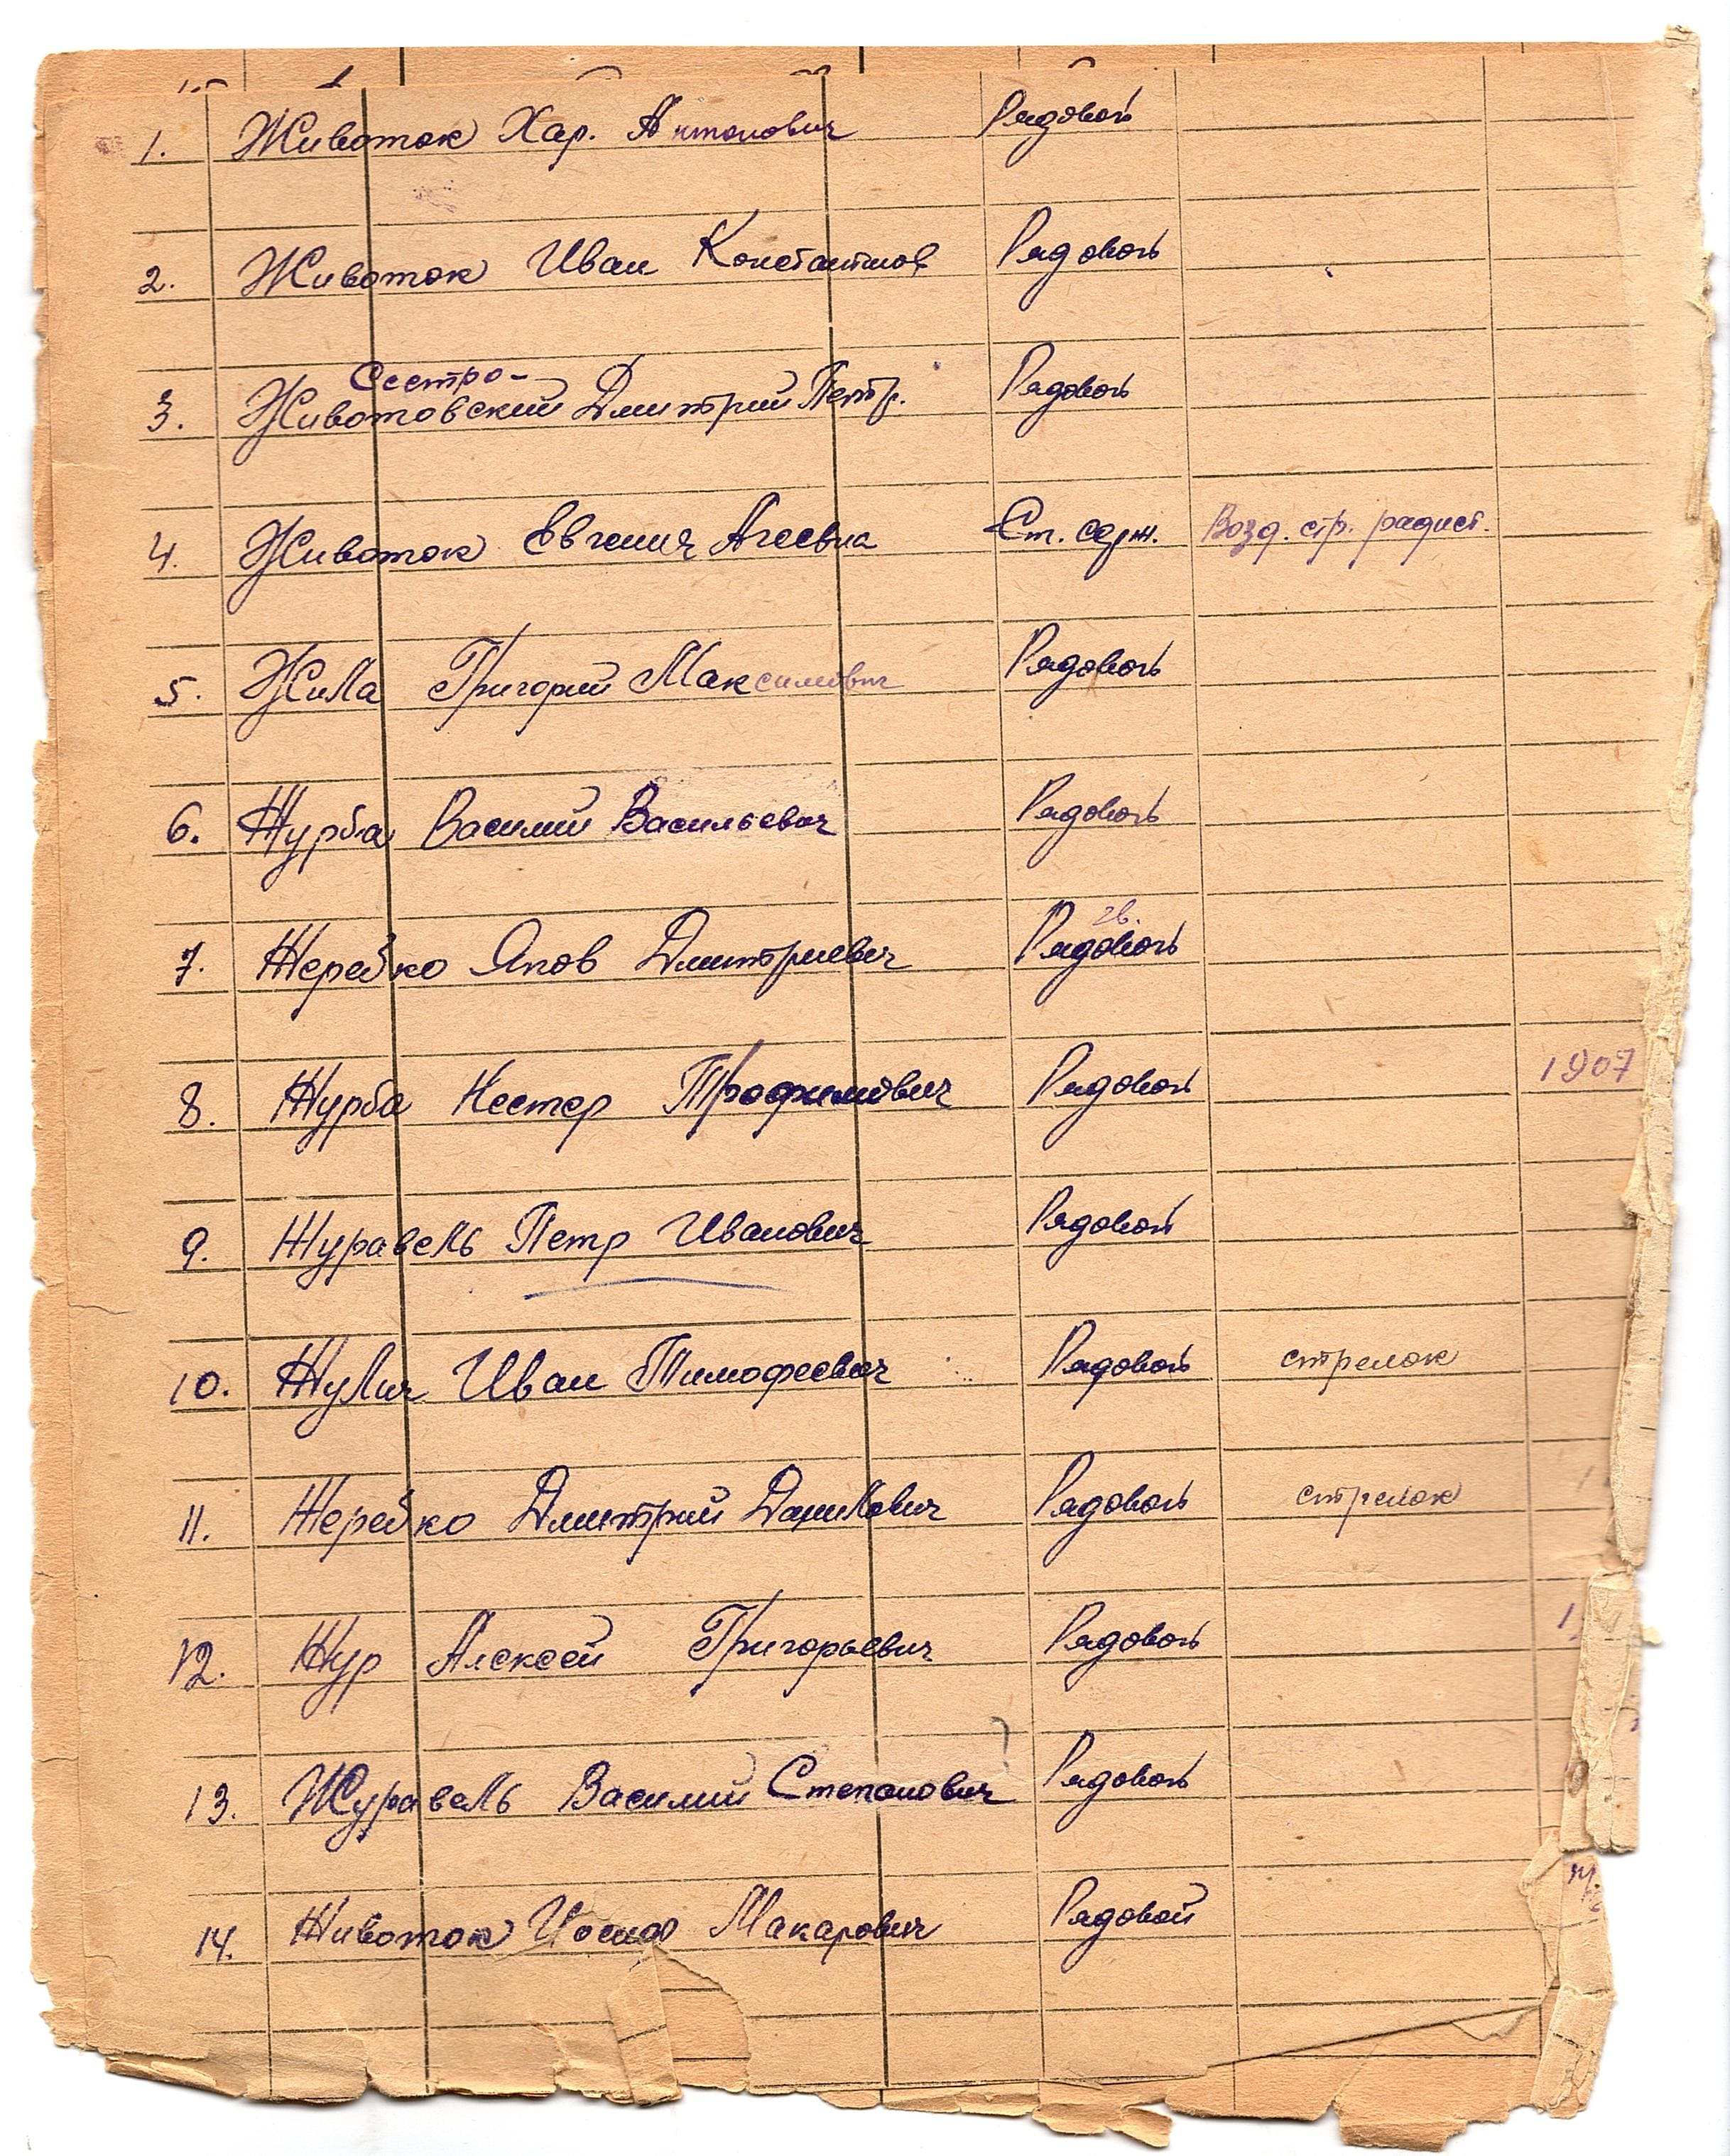 1. Животок Хар. Антонович Рядовой
2. Животок Иван Константинов Рядовой
Сестро-
3. Животовский Дмитрий Петр. Рядовой
4. Животок Евгения Агеевна Ст. серж. Возд. стр. радист.
5. Жила Григорий Максимович Рядовой
6. Журба Василий Васильевич Рядовой
гв.
7. Жеребко Яков Дмитриевич Рядовой
8. Журба Нестер Трофимович Рядовой 1907
9. Журавель Петр Иванович Рядовой
10. Жулич Иван Тимофеевич Рядовой стрелок
11. Жеребко Дмитрий Данилович Рядовой стрелок
12. Жур Алексей Григорьевич Рядовой
13. Журавель Василий Степанович ? Рядовой
14. Животок Иосиф Макарович Рядовой